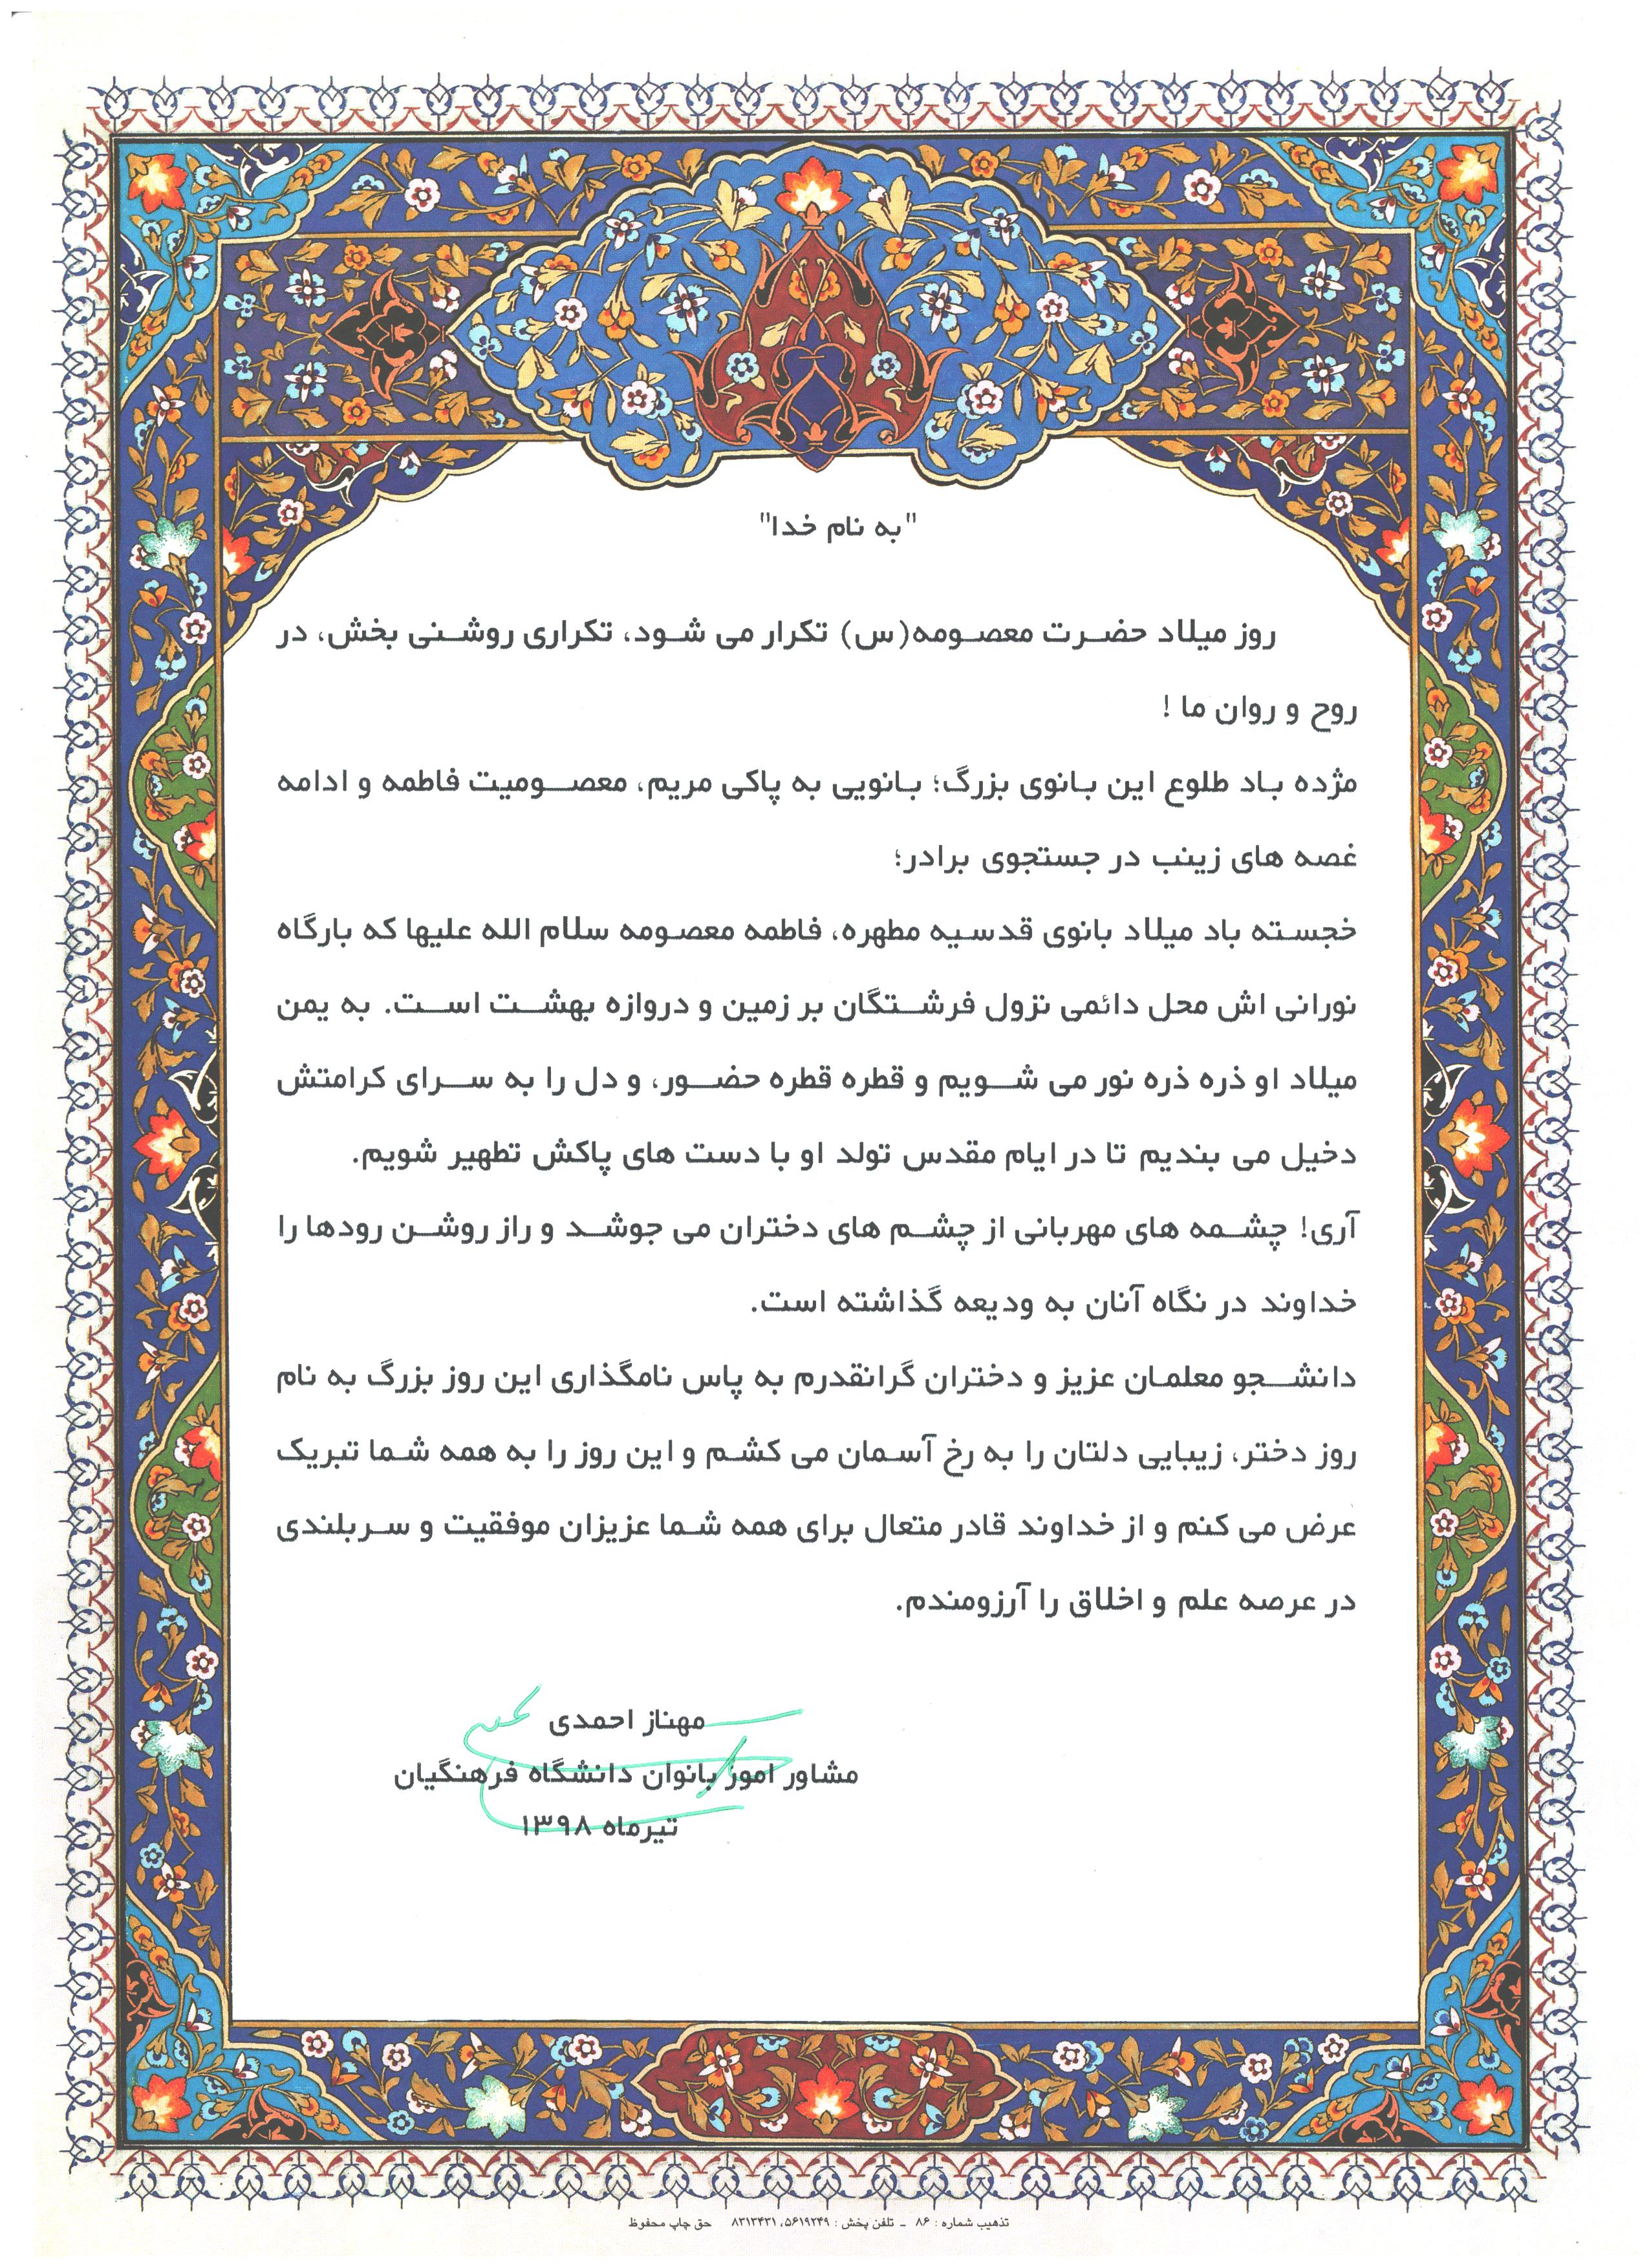 "به نام خدا"
روز میلاد حضرت معصومه(س) تکرار می شود، تکراری روشنی بخش، در
روح و روان ما !
مژده باد طلوع این بانوی بزرگ؛ بانویی به پاکی مریم، معصومیت فاطمه و ادامه
غصه های زینب در جستجوی برادر؛
خجسته باد میلاد بانوی قدسیه مطهره، فاطمه معصومه سلام الله علیها که بارگاه
نورانی اش محل دائمی نزول فرشتگان بر زمین و دروازه بهشت است. به یمن
میلاد او ذره ذره نور می شویم و قطره قطره حضور، و دل را به سرای کرامتش
دخیل می بندیم تا در ایام مقدس تولد او با دست های پاکش تطهیر شویم.
آری! چشمه های مهربانی از چشم های دختران می جوشد و راز روشن رودها را
خداوند در نگاه آنان به ودیعه گذاشته است.
دانشجو معلمان عزیز و دختران گرانقدرم به پاس نامگذاری این روز بزرگ به نام
روز دختر، زیبایی دلتان را به رخ آسمان می کشم و این روز را به همه شما تبریک
عرض می کنم و از خداوند قادر متعال برای همه شما عزیزان موفقیت و سربلندی
در عرصه علم و اخلاق را آرزومندم.
مهناز احمدی
مشاور امور بانوان دانشگاه فرهنگیان
تیرماه ۱۳۹۸
تذهیب شماره : ۸۶ ـ تلفن پخش : ۵۶۱۹۲۴۹، ۸۳۱۳۴۳۱ حق چاپ محفوظ